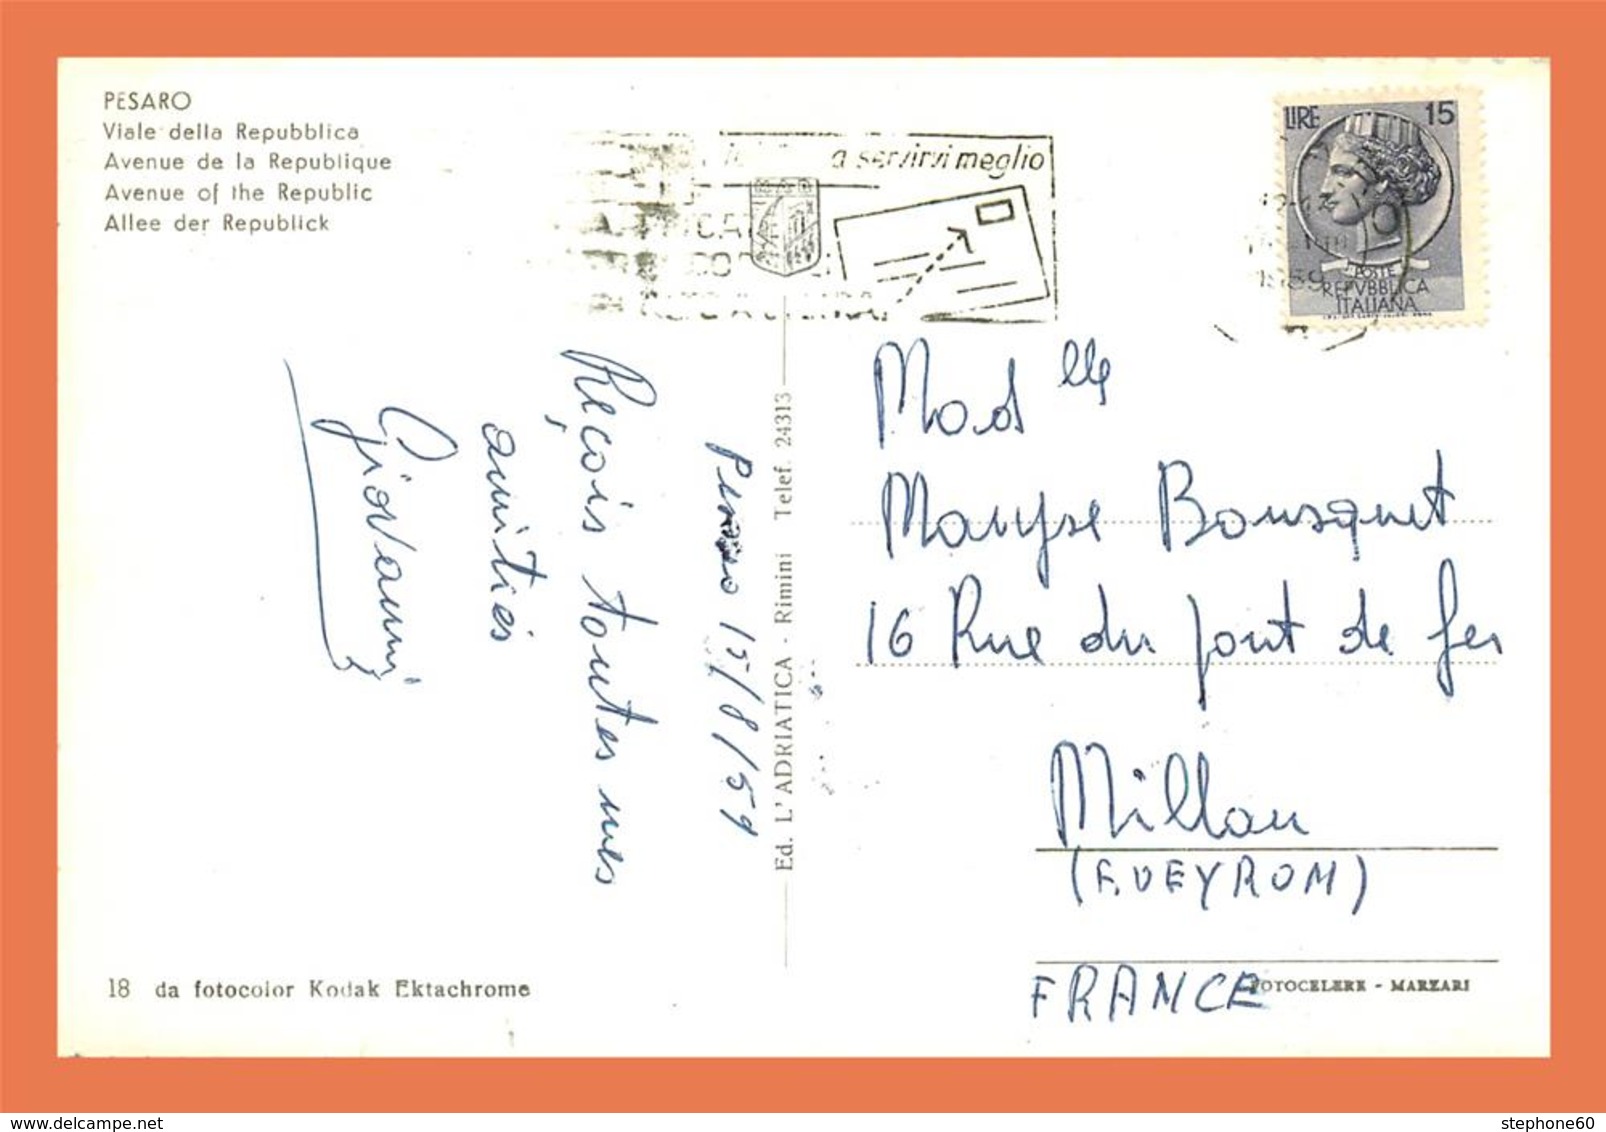 PESARO
Viale della Repubblica
Avenue de la Republique
Avenue of the Republic
Allee der Republick
a servirvi meglio
LIRE 15
1959
POSTE
REPVBBLICA
ITALIANA
Pesaro 15/8/59
Reçois toutes mes
amitiés
Giovanni
Ed. L'ADRIATICA - Rimini Telef. 24313
Mad lle
Maryse Bousquet
16 Rue du pont de fer
Millau
(AVEYRON)
FRANCE
18 da fotocolor Kodak Ektachrome
FOTOCELERE - MARZARI
delcampe.net
stephone60